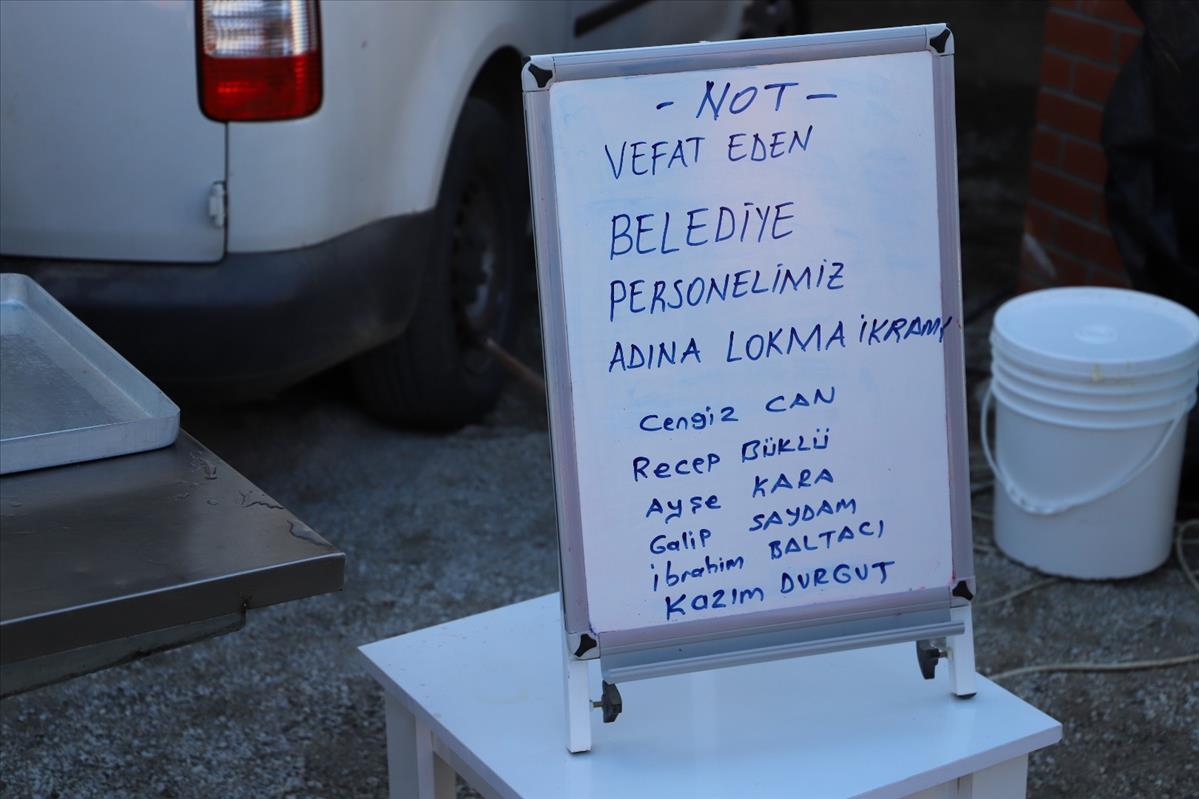 - NOT -
VEFAT EDEN
BELEDİYE
PERSONELİMİZ
ADINA LOKMA İKRAMI
Cengiz CAN
Recep BÜKLÜ
Ayşe KARA
Galip SAYDAM
İbrahim BALTACI
Kazım DURGUT